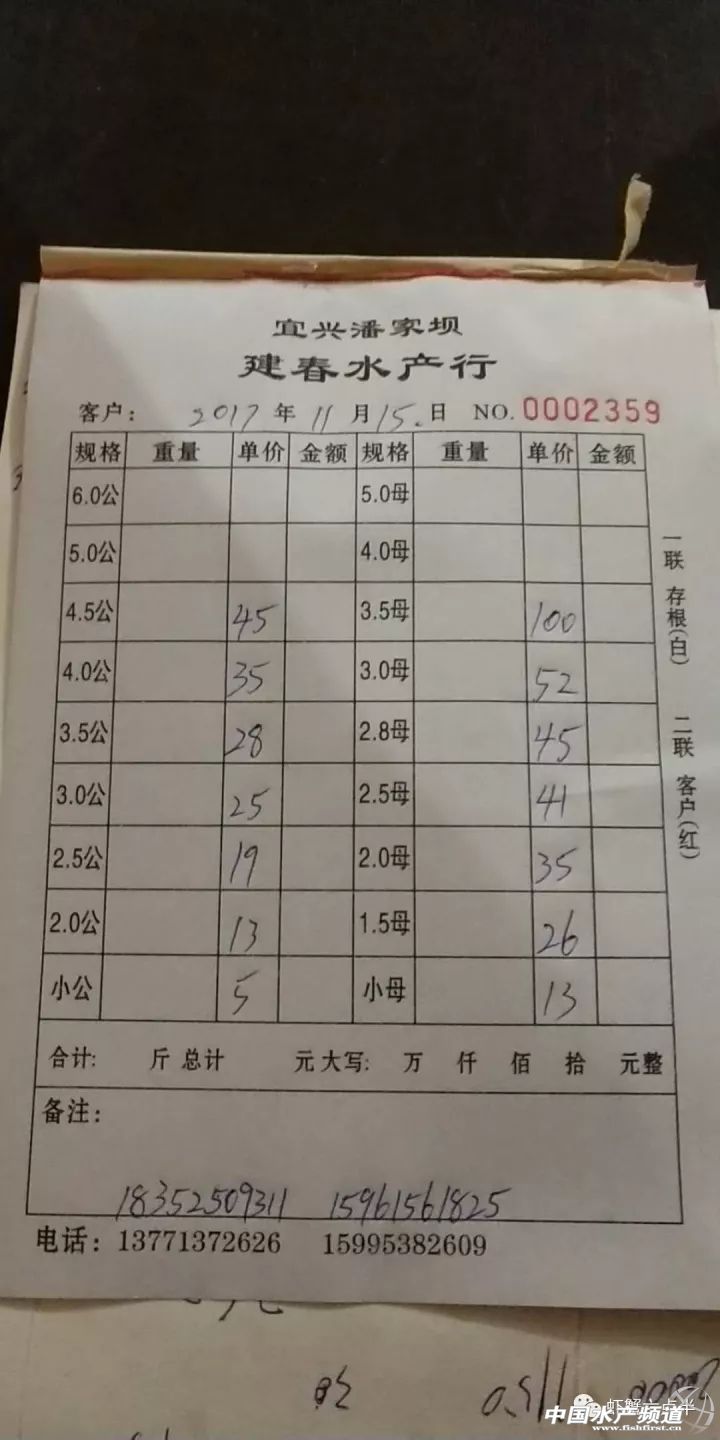 宜兴潘家坝
建春水产行
客户: 2017 年 11 月 15. 日 NO. 0002359
规格 重量 单价 金额 规格 重量 单价 金额
6.0公 5.0母
5.0公 4.0母
4.5公 45 3.5母 100
4.0公 35 3.0母 52
3.5公 28 2.8母 45
3.0公 25 2.5母 41
2.5公 19 2.0母 35
2.0公 13 1.5母 26
小公 5 小母 13
合计: 斤 总计 元 大写: 万 仟 佰 拾 元整
备注:
18352509311 15961561825
电话: 13771372626 15995382609
一联 存根(白) 二联 客户(红)
虾蟹六点半
中国水产频道
www.fishfirst.cn